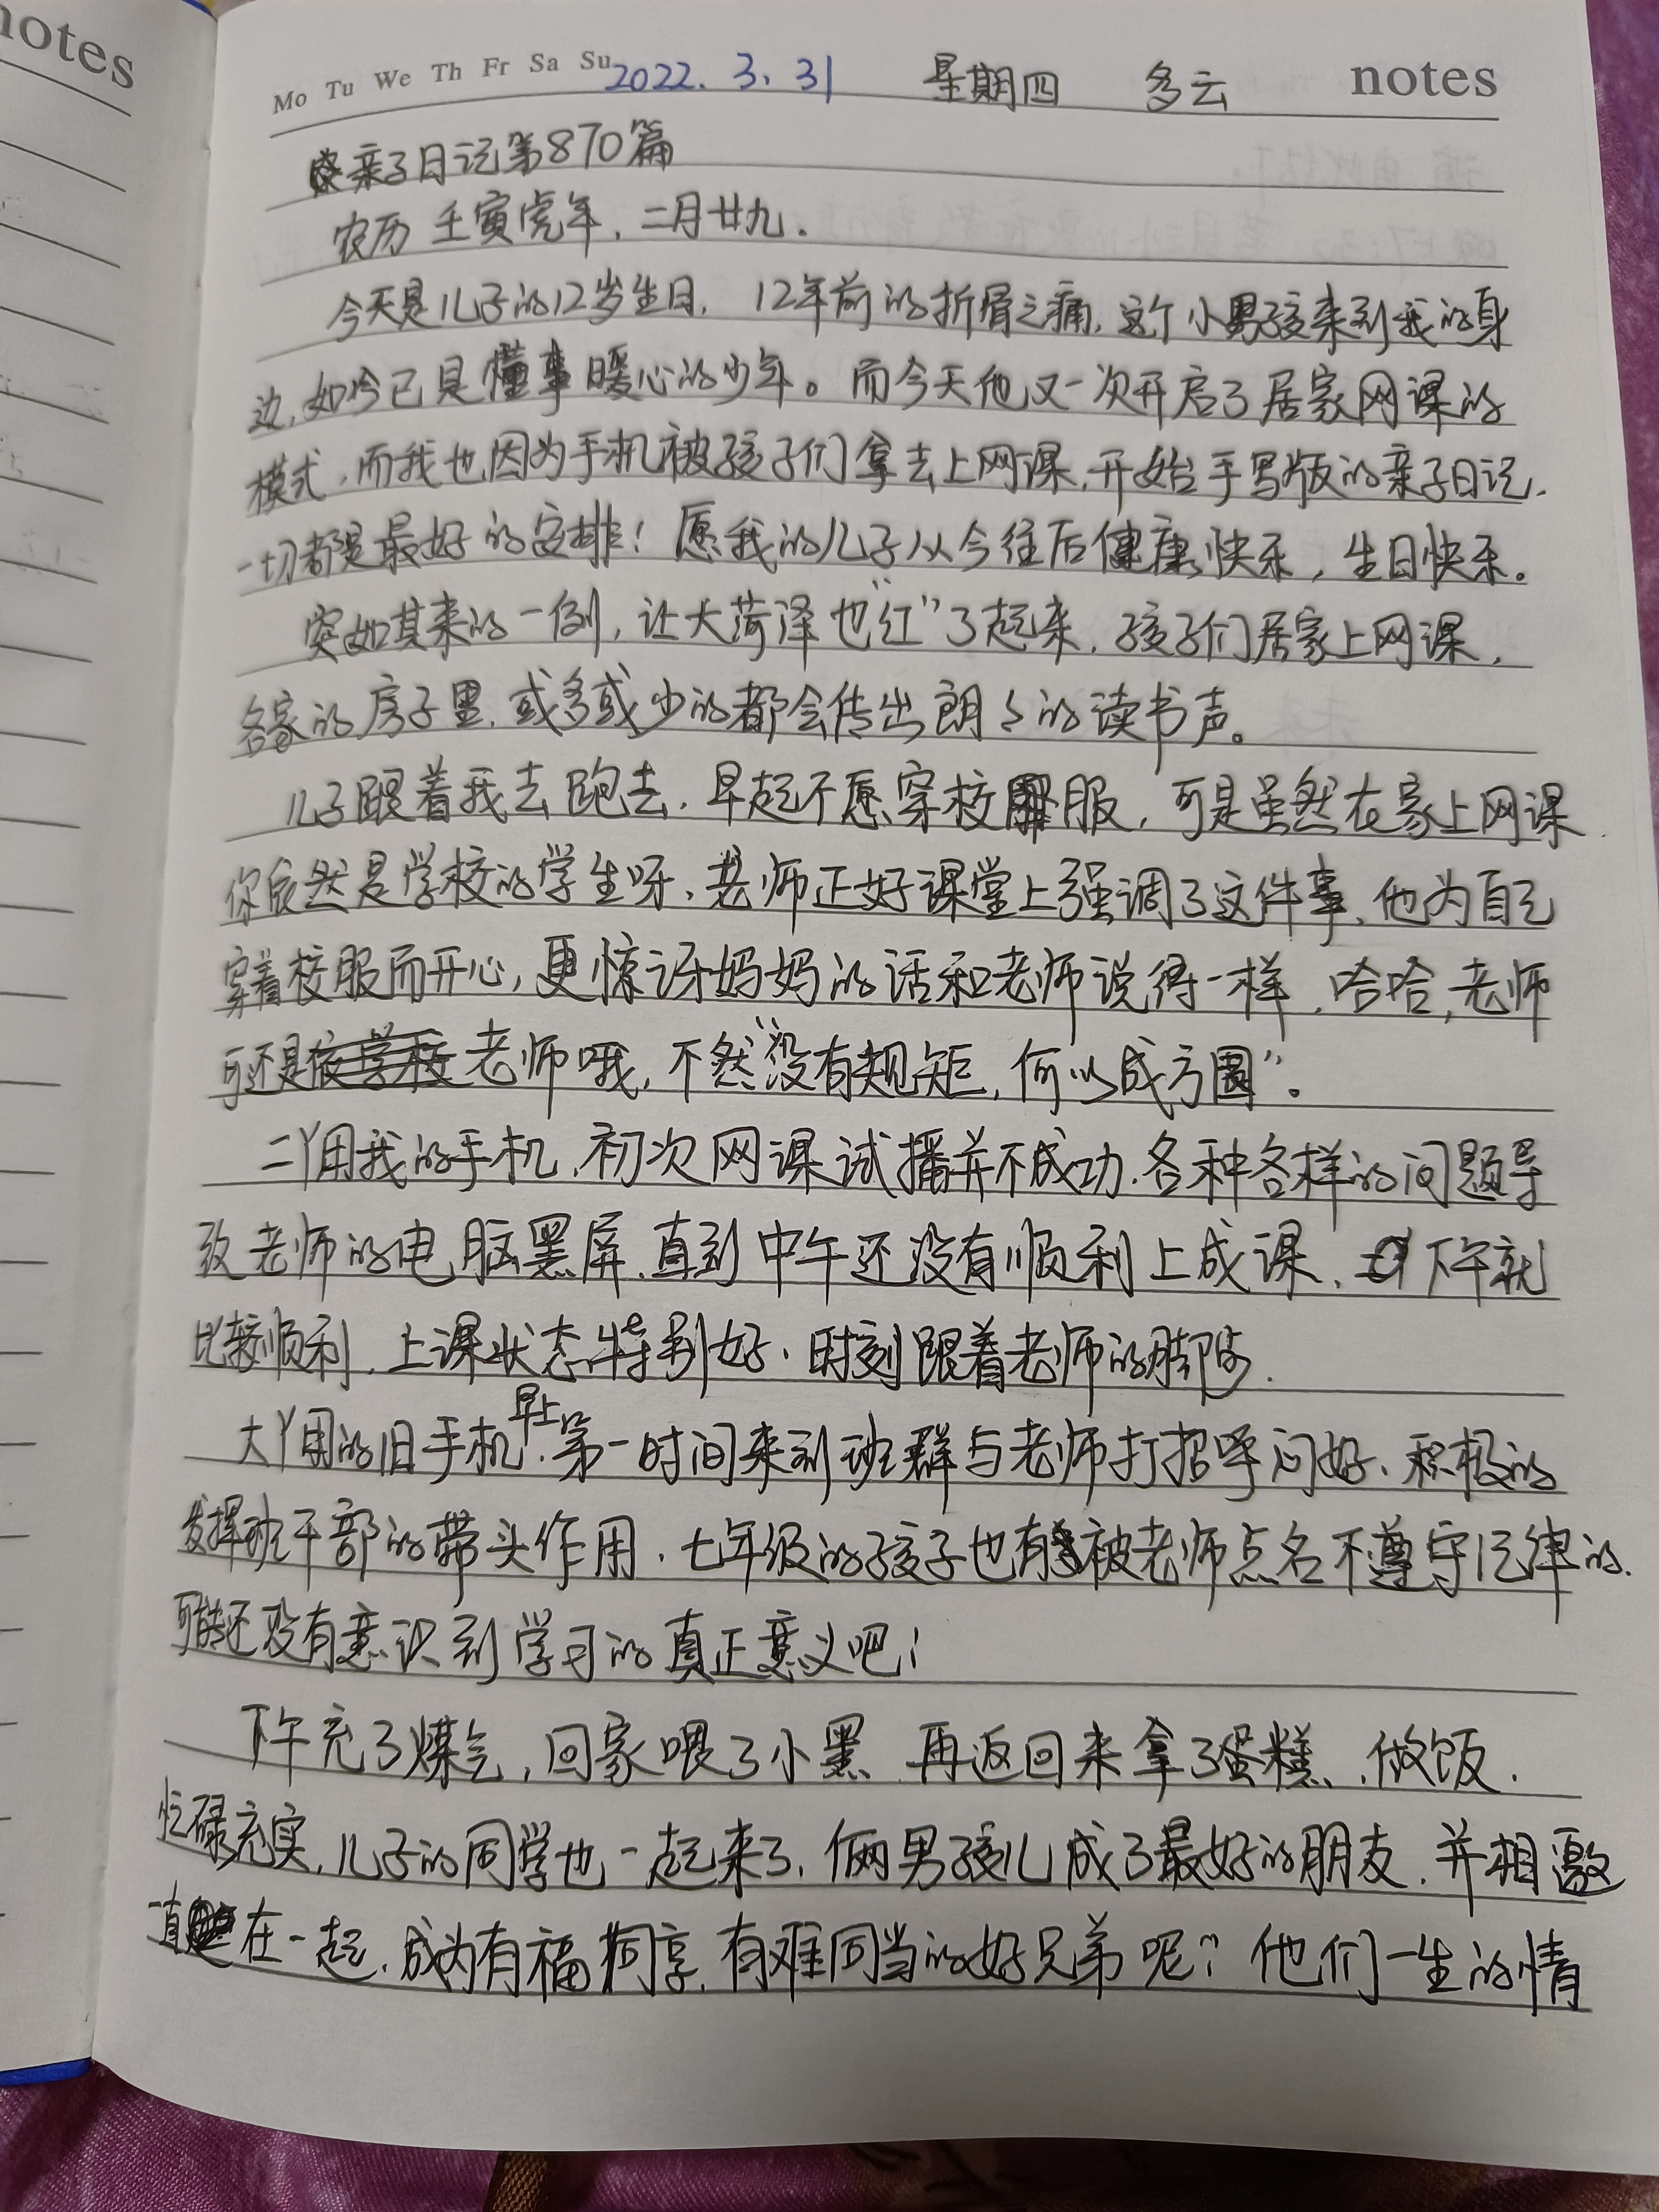 notes
Mo Tu We Th Fr Sa Su 2022.3.31 星期四 多云 notes
亲子日记第870篇
农历 壬寅虎年,二月廿九.
今天是儿子的12岁生日,12年前的折骨之痛,这个小男孩来到我的身
边,如今已是懂事暖心的少年。而今天他又一次开启了居家网课的
模式,而我也因为手机被孩子们拿去上网课,开始手写版的亲子日记.
一切都是最好的安排!愿我的儿子从今往后健康快乐,生日快乐。
突如其来的一例,让大菏泽也“红”了起来,孩子们居家上网课,
各家的房子里,或多或少的都会传出朗々的读书声。
儿子跟着我去跑去,早起不愿穿校服,可是虽然在家上网课
你依然是学校的学生呀,老师正好课堂上强调了这件事,他为自己
穿着校服而开心,更惊讶妈妈的话和老师说得一样,哈哈,老师
可还是老师哦,不然“没有规矩,何以成方圆”。
二丫用我的手机,初次网课试播并不成功,各种各样的问题导
致老师的电脑黑屏,直到中午还没有顺利上成课,下午就
比较顺利,上课状态特别好,时刻跟着老师的脚步.
大丫用的旧手机,早上第一时间来到班群与老师打招呼问好、积极的
发挥班干部的带头作用,七年级的孩子也有被老师点名不遵守纪律的.
可能还没有意识到学习的真正意义吧!
下午充了煤气,回家喂了小黑,再返回来拿了蛋糕,做饭.
忙碌充实,儿子的同学也一起来了,俩男孩儿成了最好的朋友,并相邀
一直在一起,成为有福同享,有难同当的好兄弟呢?他们一生的情